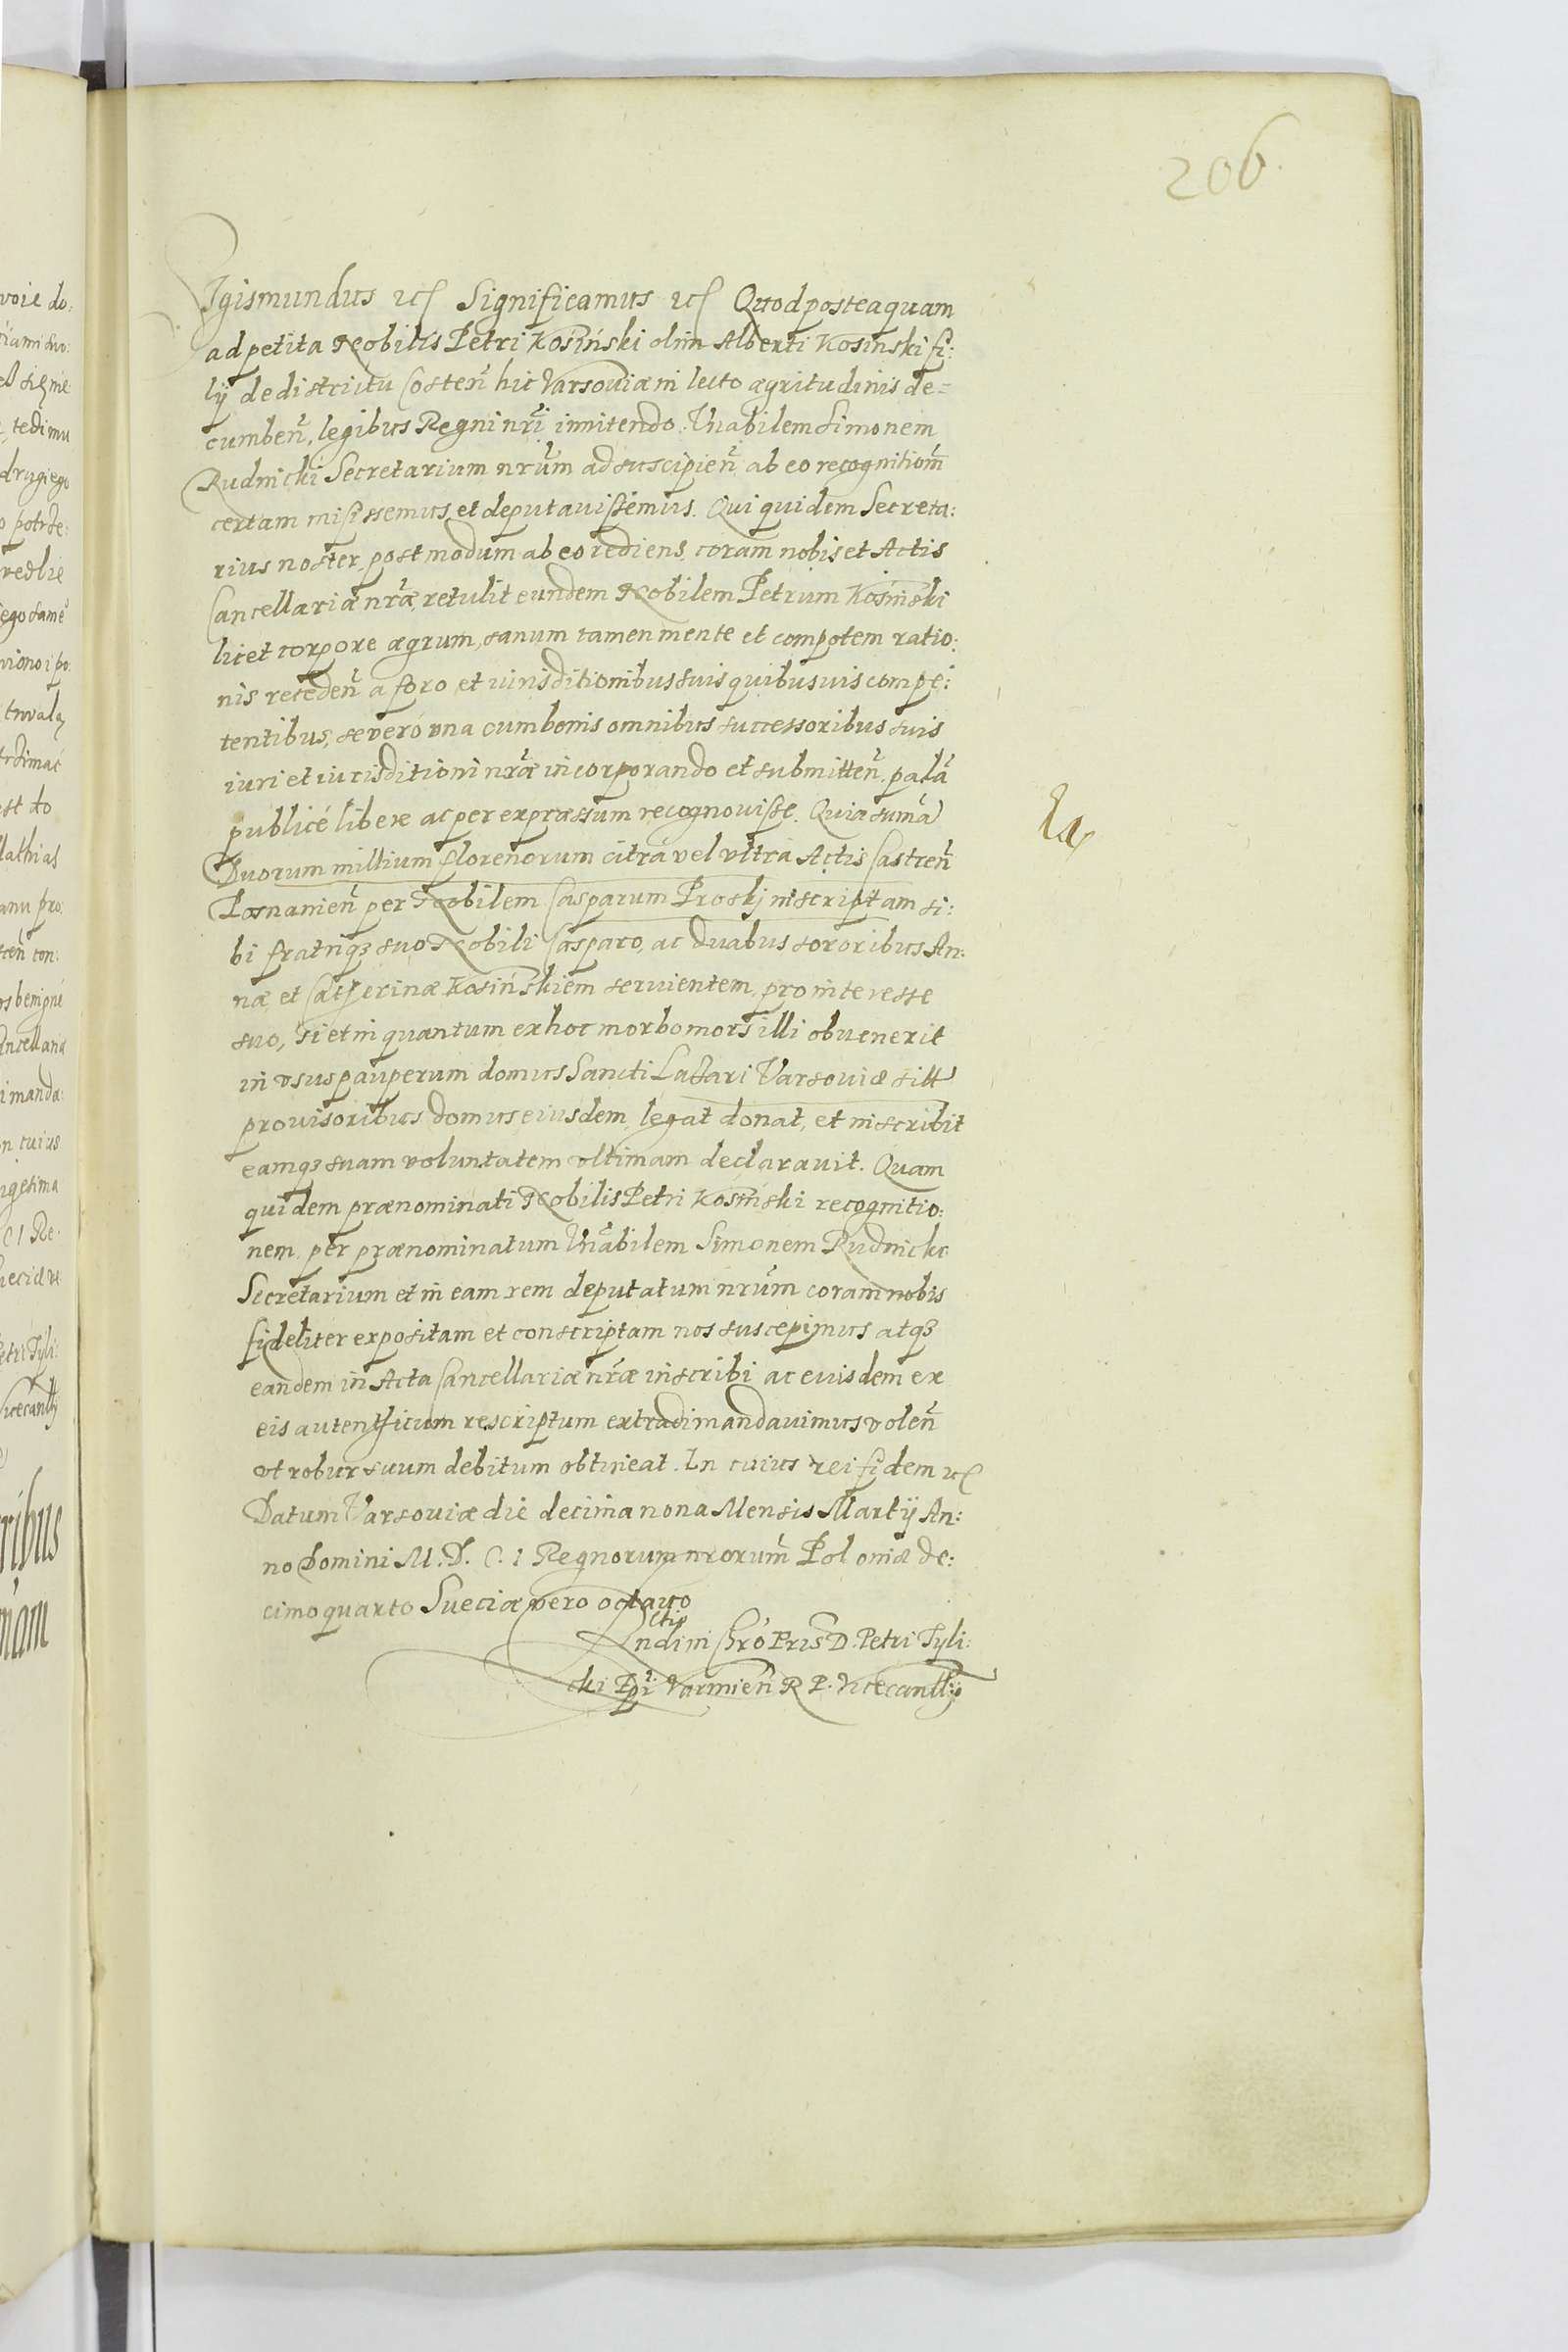 206.
Sigismundus etc Significamus etc Quod posteaquam
ad petita Nobilis Petri Kosiński olim Alberti Kosinski fi:
lij de districtu Costeñ hic Varsoviæ in lecto ægritudinis de=
cumbeñ, legibus Regni nr̃i innitendo. Vñabilem Simonem
Rudnicki Secretarium nrũm ad suscipieñ ab eo recognitiom̃
certam misissemus et deputavissemus. Qui quidem Secreta:
rius noster, postmodum ab eo rediens, coram nobis et Actis
Cancellariæ nrãe, retulit eundem Nobilem Petrum Kosiński
licet corpore ægrum, sanum tamen mente et compotem ratio:
nis recedeñ a foro et iurisditionibus suis quibusuis compe:
tentibus, se vero vna cum bonis omnibus successoribus suis
iuri et iurisditioni nrãe incorporando et submitteñ. palã
publicé libere ac per expræssum recognouisse. Quia sum̃a
Duorum millium florenorum citrà vel vltrà Actis Castreñ
Posnanieñ per Nobilem Casparum Proskj inscriptam si:
bi fratriq3 suo Nobili Casparo, ac duabus sororibus An:
næ, et Catherinæ Kosińskiem seruientem, pro interesse
suo, si et in quantum ex hoc morbo mors illi obuenerit
in vsus pauperum domus Sancti Lazari Varsouiæ sitt
prouisoribus domus eiusdem, legat donat, et inscribit
eamq3 suam voluntatem vltimam declarauit. Quam
quidem prænominati Nobilis Petri Kosinski recognitio:
nem per prænominatum Vñabilem Simonem Rudnicki
Secretarium et in eam rem deputatum nrũm coram nobis
fideliter expositam et conscriptam nos suscepimus atq3
eandem in Acta Cancellariæ nrãe inscribi ac euisdem ex
eis autenthicum rescriptum extradi mandauimus voleñ
vt robur suum debitum obtineat. In cuius rei fidem etc
Datum Varsouiæ die decima nona Mensis Martij An:
no Domini M. D. C. I Regnorum nrorum̃ Poloniæ de:
cimoquarto Sueciæ vero octavo
Rndi in Chrõ Pris D. Petri Tyli:
cki Epĩ Varmieñ R P. Vicecancllij